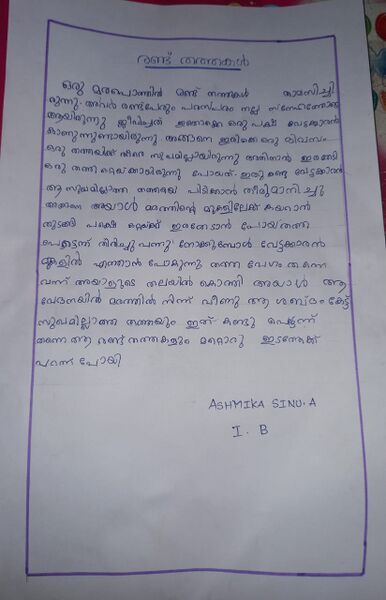 രണ്ട് തത്തകൾ
ഒരു മരപൊത്തിൽ രണ്ട് തത്തകൾ താമസിച്ചി
രുന്നു. അവർ രണ്ട്പേരും പരസ്പരം നല്ല സ്നേഹത്തോടെ
ആയിരുന്നു ജീവിച്ചത് ഇതൊക്കെ ഒരു പക്ഷി വേട്ടക്കാരൻ
കാണുന്നുണ്ടായിരുന്നു. അങ്ങനെ ഇരിക്കെ ഒരു ദിവസം
ഒരു തത്തയ്ക്ക് തീരെ സുഖമില്ലായിരുന്നു അതിനാൽ ഇരതേടി
ഒരു തത്ത ഒറ്റയ്ക്കായിരുന്നു പോയത്. ഇതു കണ്ട വേട്ടക്കാരൻ
ആ സുഖമില്ലാത്ത തത്തയെ പിടിക്കാൻ തീരുമാനിച്ചു
അങ്ങനെ അയാൾ മരത്തിന്റെ മുകളിലേക്ക് കയറാൻ
തുടങ്ങി പക്ഷെ ഒറ്റയ്ക്ക് ഇരതേടാൻ പോയ തത്ത
പെട്ടെന്ന് തിരിച്ചു വന്നു നോക്കുമ്പോൾ വേട്ടക്കാരൻ
മുകളിൽ എത്താൻ പോകുന്നു തത്ത വേഗം തന്നെ
വന്ന് അയാളുടെ തലയിൽ കൊത്തി അയാൾ ആ
വേദനയിൽ മരത്തിൽ നിന്ന് വീണു ആ ശബ്ദം കേട്ട്
സുഖമില്ലാത്ത തത്തയും ഇത് കണ്ടു പെട്ടന്ന്
തന്നെ ആ രണ്ട് തത്തകളും മറ്റൊരു ഇടത്തേക്ക്
പറന്ന് പോയി
ASHMIKA SINU.A
I. B